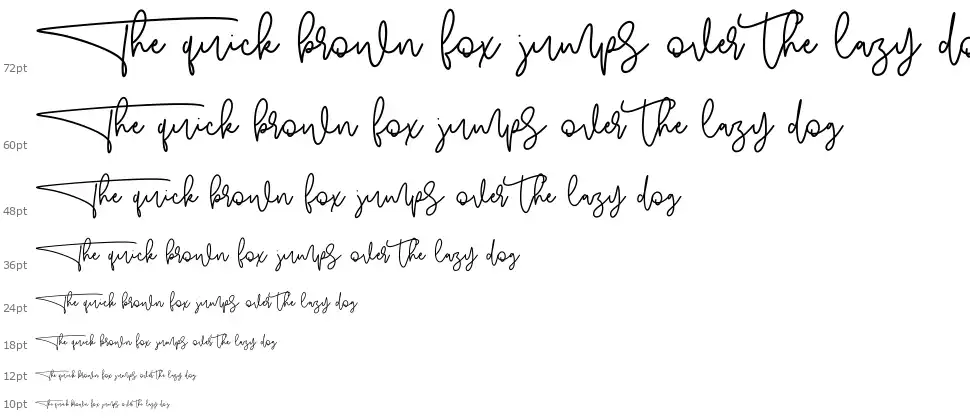 The quick brown fox jumps over the lazy do
72pt
The quick brown fox jumps over the lazy dog
60pt
The quick brown fox jumps over the lazy dog
48pt
The quick brown fox jumps over the lazy dog
36pt
The quick brown fox jumps over the lazy dog
24pt
The quick brown fox jumps over the lazy dog
18pt
The quick brown fox jumps over the lazy dog
12pt
The quick brown fox jumps over the lazy dog
10pt